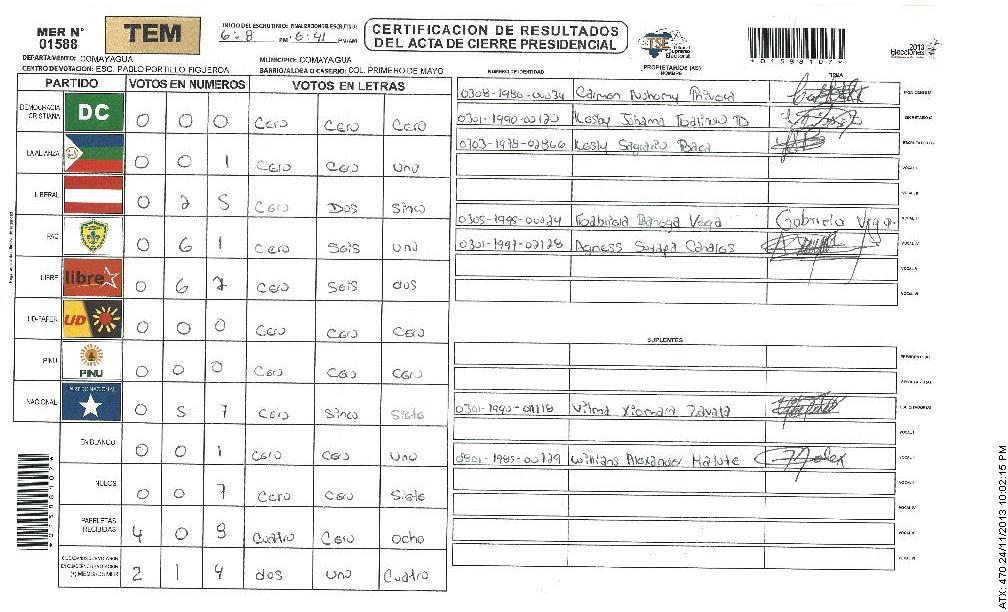 MER N° 01588
TEM
INICIO DEL ESCRUTINIO: FINALIZACION DEL ESCRUTINIO:
6:8 PM 6:41 PM/AM
CERTIFICACION DE RESULTADOS
DEL ACTA DE CIERRE PRESIDENCIAL
TSE Tribunal Supremo Electoral
2013 elecciones
*01588107*
DEPARTAMENTO: COMAYAGUA MUNICIPIO: COMAYAGUA
CENTRO DE VOTACION: ESC. PABLO PORTILLO FIGUEROA BARRIO/ALDEA O CASERIO: COL. PRIMERO DE MAYO
NUMERO DE IDENTIDAD PROPIETARIOS (AS) NOMBRE FIRMA
PARTIDO VOTOS EN NUMEROS VOTOS EN LETRAS
DEMOCRACIA CRISTIANA DC 0 0 0 Cero Cero Cero
LA ALIANZA 0 0 1 Cero Cero Uno
LIBERAL 0 2 5 Cero Dos Sinco
PAC 0 6 1 Cero Seis Uno
LIBRE libre 0 6 2 Cero Seis dos
UD-FAPER UD 0 0 0 Cero Cero Cero
PINU PINU 0 0 0 Cero Cero Cero
NACIONAL PARTIDO NACIONAL 0 5 7 Cero Sinco Siete
EN BLANCO 0 0 1 Cero Cero Uno
NULOS 0 0 7 Cero Cero Siete
PAPELETAS RECIBIDAS 4 0 8 Cuatro Cero ocho
(+) MIEMBROS MER 2 1 4 dos uno Cuatro
0308-1986-00034 Carmen
0301-1990-00120 Kesby
0703-1978-02866 Kesly Sagrario Baca
0305-1995-00024 Gabriela Banega Vega Gabriela Vega.
0301-1997-02128 Agness Suyapa Canales
SUPLENTES
0301-1990-01118 Vilma Xiomara Zavala
0801-1985-00129 Willians Alexander Matute
ATX: 470 24/11/2013 10:02:15 PM